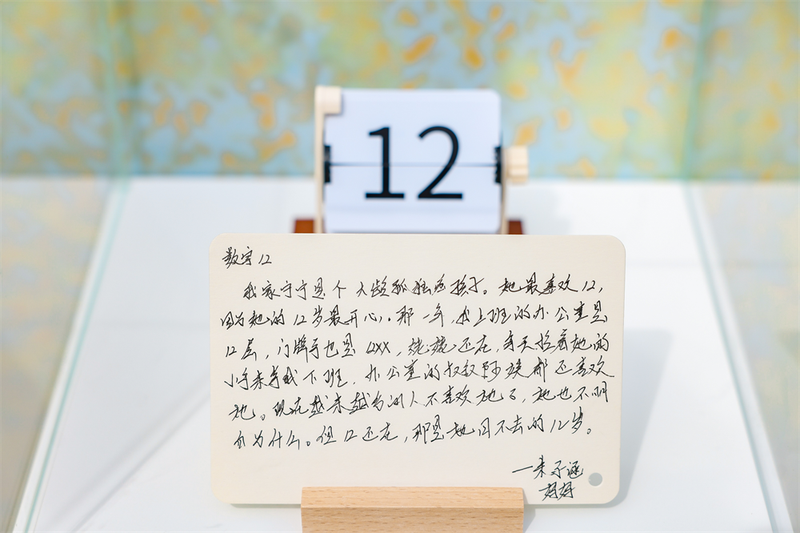 12
数字12
我家宁宁是个大龄孤独症孩子。她最喜欢12,
因为她的12岁最开心。那一年,我上班的办公室是
12层,门牌号也是12XX,姥姥还在,每天拉着她的
小手来等我下班,办公室的叔叔阿姨都还喜欢
她。现在越来越多的人不喜欢她了,她也不明
白为什么。但12还在,那是她回不去的12岁。
—子涵
妈妈